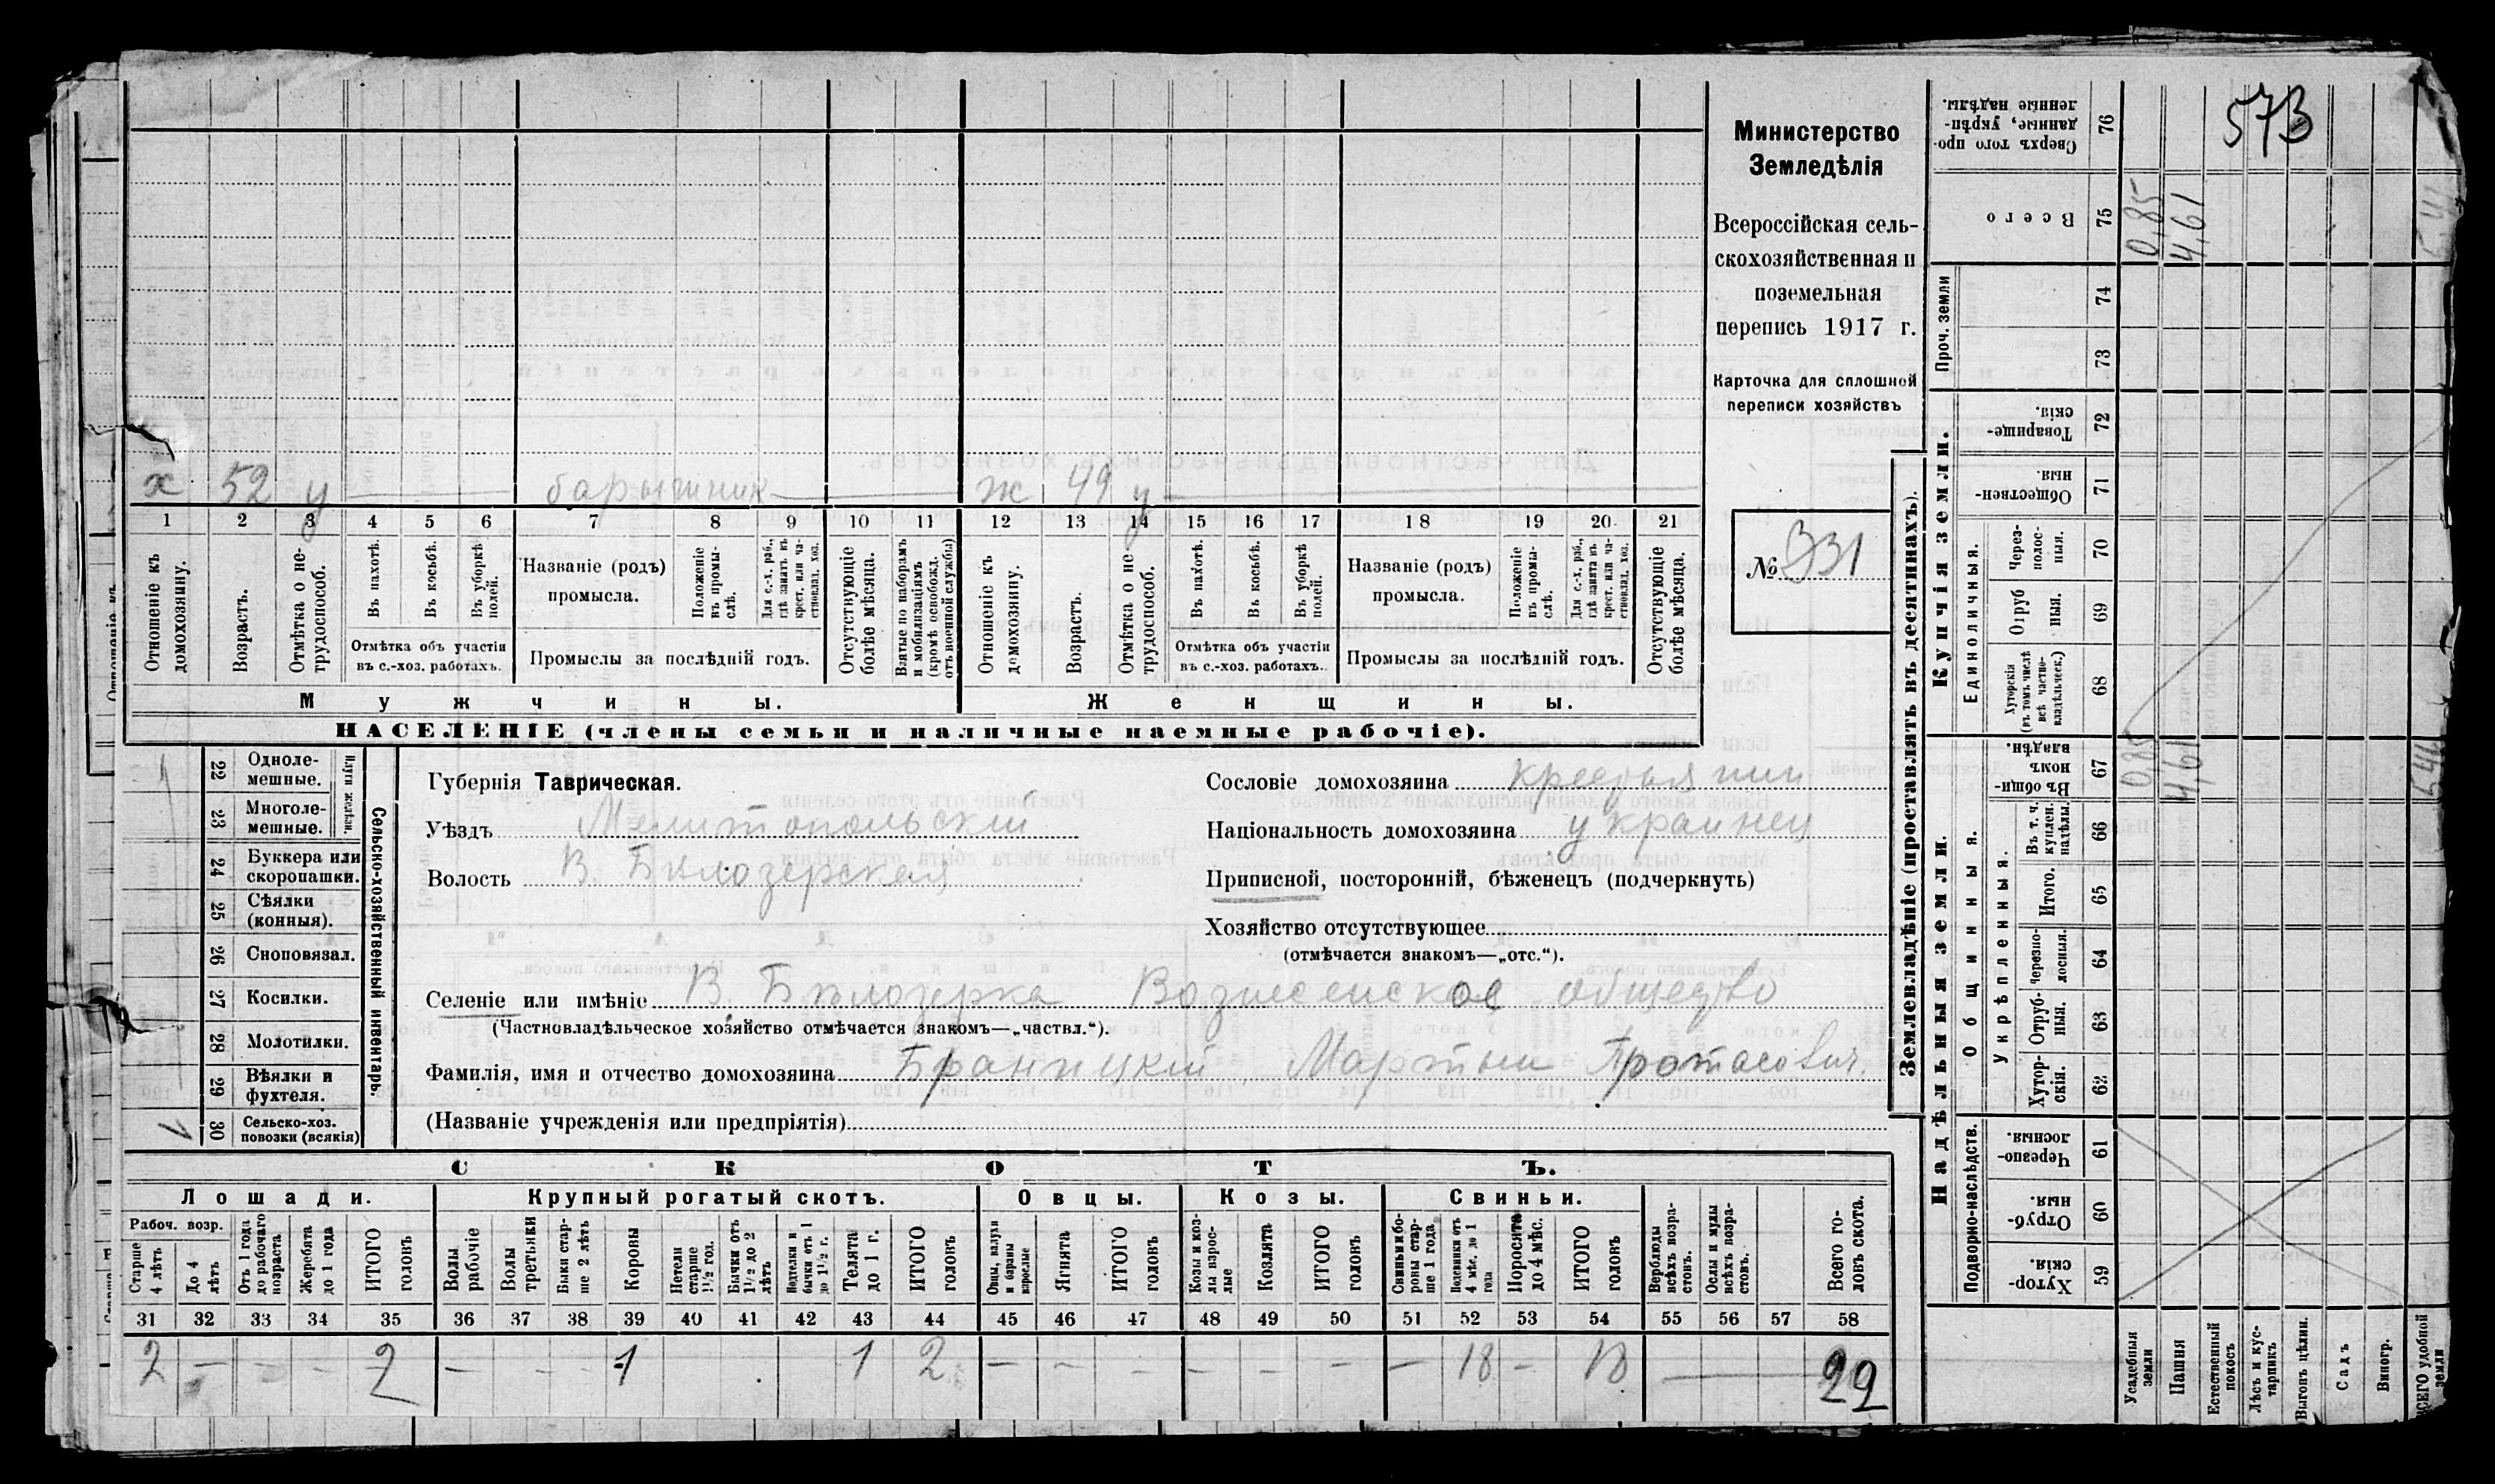 573
Министерство
Земледѣлія
Всероссійская сель-
скохозяйственная и
поземельная
перепись 1917 г.
Карточка для сплошной
переписи хозяйствъ
№ 331
х 52 у барышник ж 49 у
1 2 3 4 5 6 7 8 9 10 11 12 13 14 15 16 17 18 19 20 21
Отношеніе къ домохозяину.
Возрастъ.
Отмѣтка о не-трудоспособ.
Въ пахотѣ.
Въ косьбѣ.
Въ уборкѣ полей.
Отмѣтка объ участіи
въ с.-хоз. работахъ.
Названіе (родъ)
промысла.
Положеніе въ промы-слѣ.
Для с.-х. раб., гдѣ занятъ въ крест. или ча-стновлад. хоз.
Промыслы за послѣдній годъ.
Отсутствующіе болѣе мѣсяца.
Взятые по наборамъ и мобилизаціямъ (кромѣ освобожд. отъ военной службы)
Отношеніе къ домохозяину.
Возрастъ.
Отмѣтка о не-трудоспособ.
Въ пахотѣ.
Въ косьбѣ.
Въ уборкѣ полей.
Отмѣтка объ участіи
въ с.-хоз. работахъ.
Названіе (родъ)
промысла.
Положеніе въ промы-слѣ.
Для с.-х. раб., гдѣ занята въ крест. или ча-стновлад. хоз.
Промыслы за послѣдній годъ.
Отсутствующіе болѣе мѣсяца.
Мужчины. Женщины.
НАСЕЛЕНІЕ (члены семьи и наличные наемные рабочіе).
Сельско-хозяйственный инвентарь.
Плуги желѣзн.
22 Одноле-мешные.
23 Многоле-мешные.
24 Буккера или скоропашки.
25 Сѣялки (конныя).
26 Сноповязал.
27 Косилки.
28 Молотилки.
29 Вѣялки и фухтеля.
30 Сельско-хоз. повозки (всякія)
Губернія Таврическая.
Уѣздъ Мелитопольскій
Волость В. Бѣлозерская
Сословіе домохозяина крестьянин
Національность домохозяина украинец
Приписной, посторонній, бѣженецъ (подчеркнуть)
Хозяйство отсутствующее
(отмѣчается знакомъ—„отс.“).
Селеніе или имѣніе В. Бѣлозерка Вознесенское общество
(Частновладѣльческое хозяйство отмѣчается знакомъ—„частвл.“).
Фамилія, имя и отчество домохозяина Браницкій, Мартын Протасович.
(Названіе учрежденія или предпріятія)
СКОТЪ.
Лошади. Крупный рогатый скотъ. Овцы. Козы. Свиньи.
Рабоч. возр.
Старше 4 лѣтъ
До 4 лѣтъ
Отъ 1 года до рабочаго возраста
Жеребята до 1 года
ИТОГО головъ
Волы рабочіе
Волы третьяки
Быки стар-ше 2 лѣтъ
Коровы
Нетели старше 1½ год.
Бычки отъ 1½ до 2 лѣтъ
Подтелки и бычки отъ 1 до 1½ г.
Телята до 1 г.
ИТОГО головъ
Овцы, валухи и бараны взрослые
Ягнята
ИТОГО головъ
Козы и коз-лы взрос-лые
Козлята
ИТОГО головъ
Свиньи и бо-ровы стар-ше 1 года
Подсвинки отъ 4 мѣс. до 1 года
Поросята до 4 мѣс.
ИТОГО головъ
Верблюды всѣхъ возра-стовъ.
Ослы и мулы всѣхъ возра-стовъ.
Всего го-ловъ скота.
31 32 33 34 35 36 37 38 39 40 41 42 43 44 45 46 47 48 49 50 51 52 53 54 55 56 57 58
2 — — - 2 — - - 1 1 2 — - - - - — — 18 - 18 — 22
Землевладѣніе (проставлять въ десятинахъ).
Купчія земли.
Надѣльныя земли.
Проч. земли
Единоличныя.
Общинныя.
Укрѣпленныя.
Подворно-наслѣдств.
Сверхъ того про-данные, укрѣп-ленные надѣлы. 76
Всего 75 0,85 4,61 5,41
74
73
Товарище-скія. 72
Обществен-ныя. 71
Через-полос-ныя. 70
Отруб-ныя. 69
Хуторскія (въ томъ числѣ всѣ частно-владѣльческ.) 68
Въ общин-номъ владѣн. 67 0,85 4,61
Въ т. ч. куплен. надѣлы. 66
Итого. 65
Черезпо-лосныя. 64
Отруб-ныя. 63
Хутор-скія. 62
Черезпо-лосныя. 61
Отруб-ныя. 60
Хутор-скія. 59
Усадебныя земли
Пашня
Естественный покосъ
Лѣсъ и кус-тарникъ
Выгонъ цѣлин.
Садъ
Виногр.
ВСЕГО удобной земли